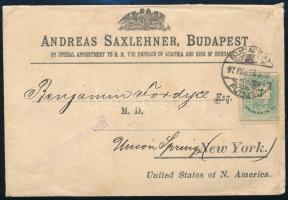 ANDREAS SAXLEHNER, BUDAPEST
BY SPECIAL APPOINTMENT TO H. M. THE EMPEROR OF AUSTRIA AND KING OF HUNGARY
Benjamin Fordyce Esq.
M. D.
Union Springs New York.
United States of N. America.